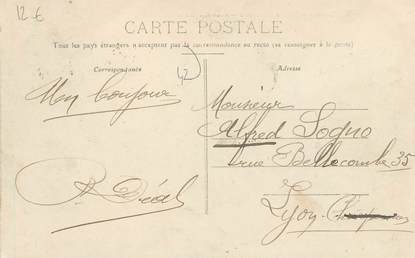 12 €
CARTE POSTALE
Tous les pays étrangers n'acceptent pas la correspondance au recto (se renseigner à la poste)
Correspondance
42
Adresse
Un bonjour
Monsieur
Alfred Sogno
rue Bellecombe 35
Lyon